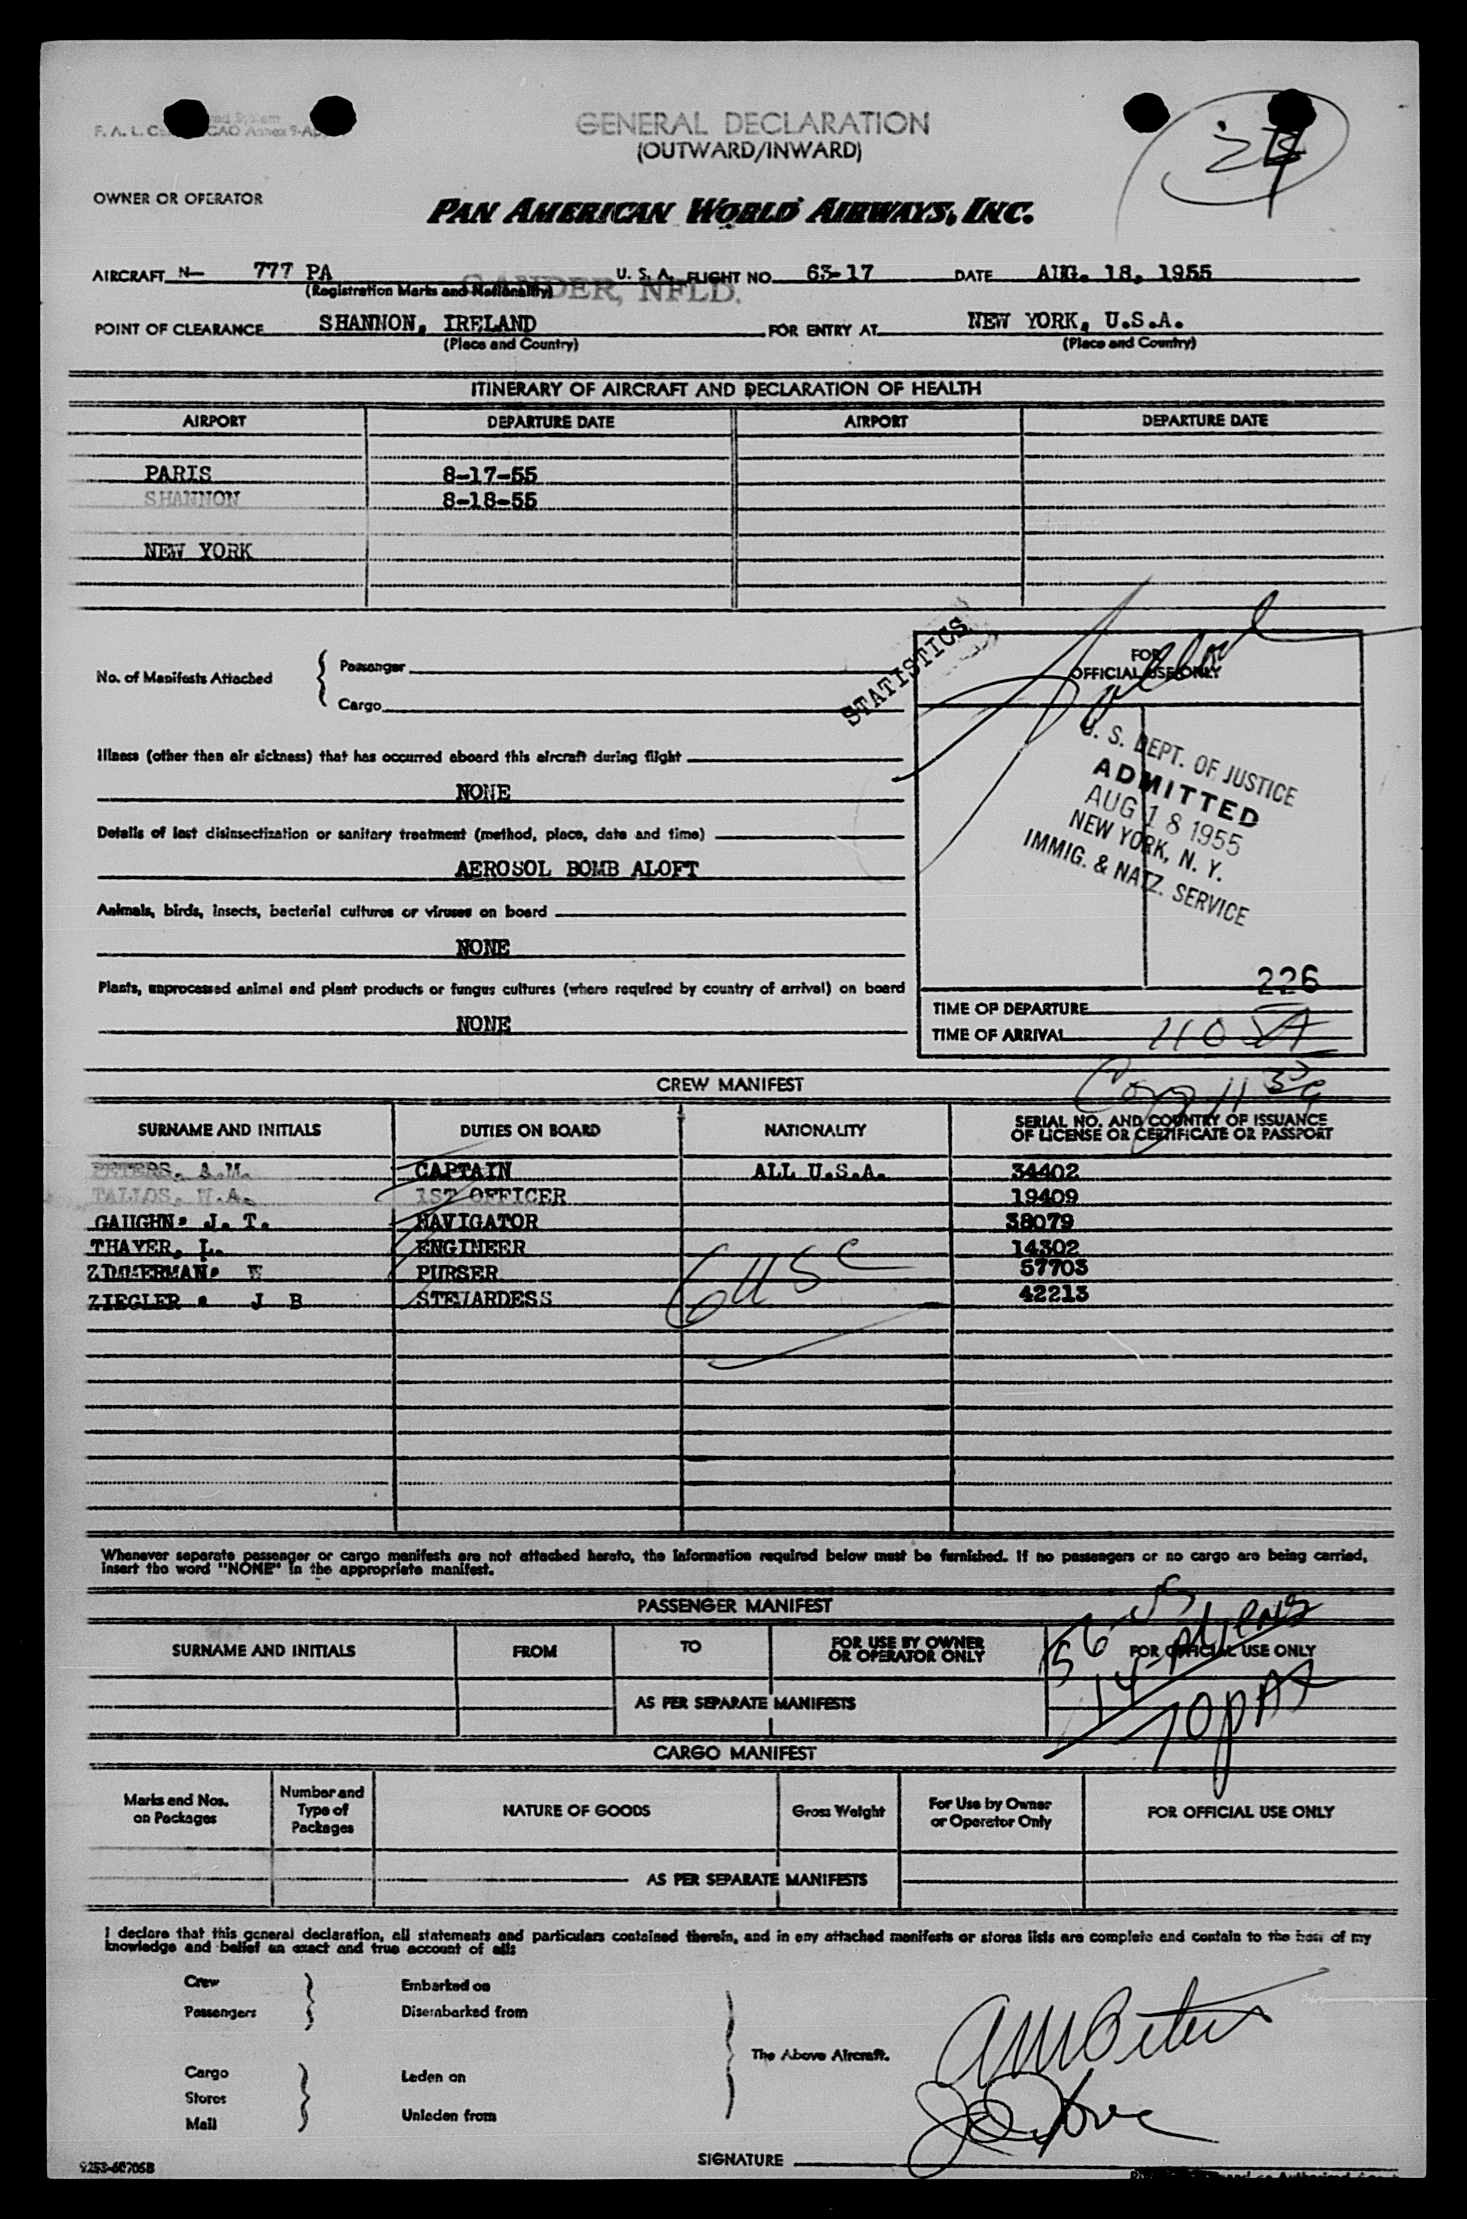 F. A. L. C ICAO Annex 9-Ap
GENERAL DECLARATION
(OUTWARD/INWARD)
OWNER OR OPERATOR
PAN AMERICAN WORLD AIRWAYS, INC.
AIRCRAFT N— 777 PA U. S. A. FLIGHT NO. 63-17 DATE AUG. 18, 1955
(Registration Marks and Nationality)
GANDER, NFLD.
POINT OF CLEARANCE SHANNON, IRELAND FOR ENTRY AT NEW YORK, U.S.A.
(Place and Country) (Place and Country)
ITINERARY OF AIRCRAFT AND DECLARATION OF HEALTH
AIRPORT DEPARTURE DATE AIRPORT DEPARTURE DATE
PARIS 8-17-55
SHANNON 8-18-55
NEW YORK
STATISTICS
No. of Manifests Attached { Passenger
Cargo
FOR
OFFICIAL USE ONLY
Illness (other than air sickness) that has occurred aboard this aircraft during flight
NONE
Details of last disinsectization or sanitary treatment (method, place, date and time)
AEROSOL BOMB ALOFT
Animals, birds, insects, bacterial cultures or viruses on board
NONE
Plants, unprocessed animal and plant products or fungus cultures (where required by country of arrival) on board
NONE
U. S. DEPT. OF JUSTICE
ADMITTED
AUG 18 1955
NEW YORK, N. Y.
IMMIG. & NATZ. SERVICE
226
TIME OF DEPARTURE
TIME OF ARRIVAL 1105A
CREW MANIFEST
SURNAME AND INITIALS DUTIES ON BOARD NATIONALITY SERIAL NO. AND COUNTRY OF ISSUANCE
OF LICENSE OR CERTIFICATE OR PASSPORT
PETERS, A.M. CAPTAIN ALL U.S.A. 34402
TALLOS, W.A. 1ST OFFICER 19409
GAUGHN, J. T. NAVIGATOR 38079
THAYER, L. ENGINEER 14302
ZIMMERMAN, W PURSER 57703
ZIEGLER, J B STEWARDESS 42213
6USC
Whenever separate passenger or cargo manifests are not attached hereto, the information required below must be furnished. If no passengers or no cargo are being carried,
insert the word "NONE" in the appropriate manifest.
PASSENGER MANIFEST
SURNAME AND INITIALS FROM TO FOR USE BY OWNER
OR OPERATOR ONLY FOR OFFICIAL USE ONLY
56-US
14-Aliens
70 PAX
AS PER SEPARATE MANIFESTS
CARGO MANIFEST
Marks and Nos.
on Packages Number and
Type of
Packages NATURE OF GOODS Gross Weight For Use by Owner
or Operator Only FOR OFFICIAL USE ONLY
AS PER SEPARATE MANIFESTS
I declare that this general declaration, all statements and particulars contained therein, and in any attached manifests or stores lists are complete and contain to the best of my
knowledge and belief an exact and true account of all:
Crew } Embarked on
Passengers Disembarked from
The Above Aircraft.
Cargo } Laden on
Stores
Mail Unladen from
AM Peters
SIGNATURE
9253-60705B